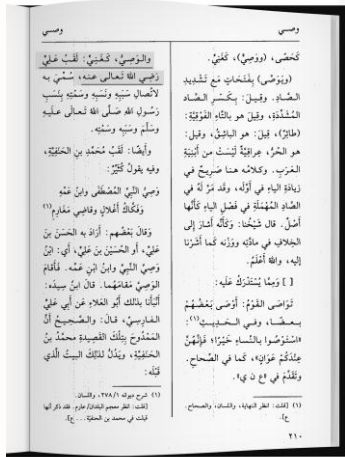 وصــي
وصــي
كَحَصَى، (ووَصِيٌّ)، كَغَنِيٍّ.
(ويَوَصَّى) بفَتَحَاتٍ مَع تَشْدِيدِ
الصَّادِ. وقيلَ: بِكَسْرِ الصَّادِ
المُشَدَّدَةِ، وقيل هو بالتَّاءِ الفَوْقِيَّةِ:
(طائِرٌ)، قِيلَ: هو الباشِقُ، وقيل:
هو الحُرُّ، عِراقِيَّةٌ لَيْسَتْ من أَبْنِيَةِ
العَرَبِ. وكلامُه هنا صَرِيحٌ في
زيادَةِ الياءِ في أَوَّلِه، وقد مَرَّ لَهُ في
الصَّادِ المُهْمَلَةِ في فَصْلِ الياءِ كَأَنَّها
أَصْلٌ. قال شَيْخُنا: وكَأَنَّه أَشارَ إلى
الخِلافِ في مادَّتِه ووَزْنِه كما أَشَرْنا
إليه، والله أَعْلَمُ.
[ ] ومِمَّا يُسْتَدْرَكُ عَلَيه:
تَوَاصَى القَوْمُ: أَوْصَى بَعْضُهُمْ
بعــضًــا، وفــي الــحَــدِيــثِ(١):
«اسْتَوْصُوا بالنِّساءِ خَيْرًا؛ فَإِنَّهُنَّ
عِنْدَكُمْ عَوَانٍ»، كما في الصِّحاحِ.
وتُقَدِّمَ في «ع ن ي».
(١) [قلت: انظر النهاية، واللسان، والصحاح.
ع].
والوَصِيُّ، كَغَنِيٍّ: لَقَبُ عَلِيٍّ
رَضِيَ اللهُ تَعالى عنه، سُمِّيَ به
لاتِّصالِ سَبَبِه ونَسَبِه وسَمْتِه بِنَسَبِ
رَسُولِ اللهِ صَلَّى اللهُ تَعالَى عَلَيهِ
وسَلَّمَ وسَبَبِه وسَمْتِه.
وأَيضًا: لَقَبُ مُحَمَّدِ بنِ الحَنَفِيَّةِ،
وفيه يقولُ كُثَيِّرٌ:
وَصِيُّ النَّبِيِّ المُصْطَفَى وابنُ عَمِّهِ
وَفَكَّاكُ أَغْلالٍ وقاضِي مَغَارِمِ(١)
وَقالَ بَعْضُهم: أَرَادَ به الحَسَنَ بنَ
عَلِيٍّ، أو الحُسَيْنَ بنَ عَلِيٍّ، أي: ابْنُ
وَصِيِّ النَّبِيِّ وابنُ ابْنِ عَمِّه. فَأَقامَ
الوَصِيَّ مَقامَهُما. قالَ ابنُ سِيدَه:
أَنْبَأَنا بذلك أَبُو العَلاءِ عَن أَبِي عَلِيٍّ
الفارِسِيِّ، قالَ: والصَّحِيحُ أَنَّ
المَمْدُوحَ بِتِلْكَ القَصِيدَةِ محمَّدُ بنُ
الحَنَفِيَّةِ، ويَدُلُّ لذلِكَ البيتُ الَّذي
قَبْلَه:
(١) شرح ديوانه ٢٧٨/١، واللسان.
[قلت: انظر معجم البلدان/عارم. فقد ذكر أنها
قيلت في محمد بن الحنفيّة... ع].
٢١٠